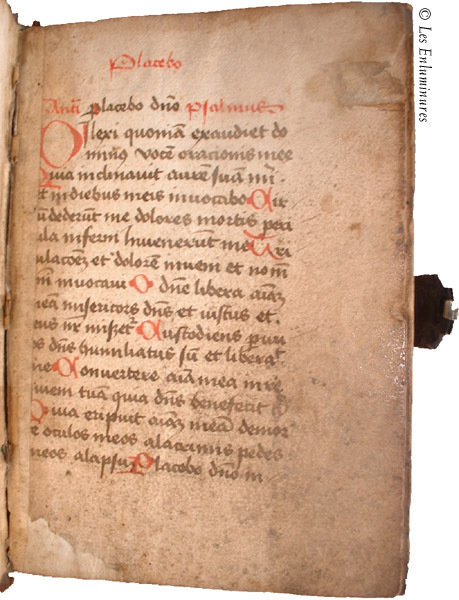 Placebo
Antī placebo dn̄o psalmus
Dilexi quoniam exaudiet do
minꝰ vocē oracionis mee
Quia inclinauit aurē suam m̄.
et in diebus meis inuocabo Cir
cū dederūt me dolores mortis peri
cula inferni Inuenerūt me Tri
bulacōem et dolorē inueni et nom̄
dn̄i inuocaui O dn̄e libera aīam
meā misericors dn̄s et iustus et
deus nr̄ miseret Custodiens paru
los dn̄s humiliatus sū et libera
me Conuertere aīa mea in re
quiem tuā quia dn̄s benefecit
Quia eripuit aīam meā de mor
te oculos meos a lacrimis pedes
meos a lapsu Placebo dn̄o in
© Les Enluminures